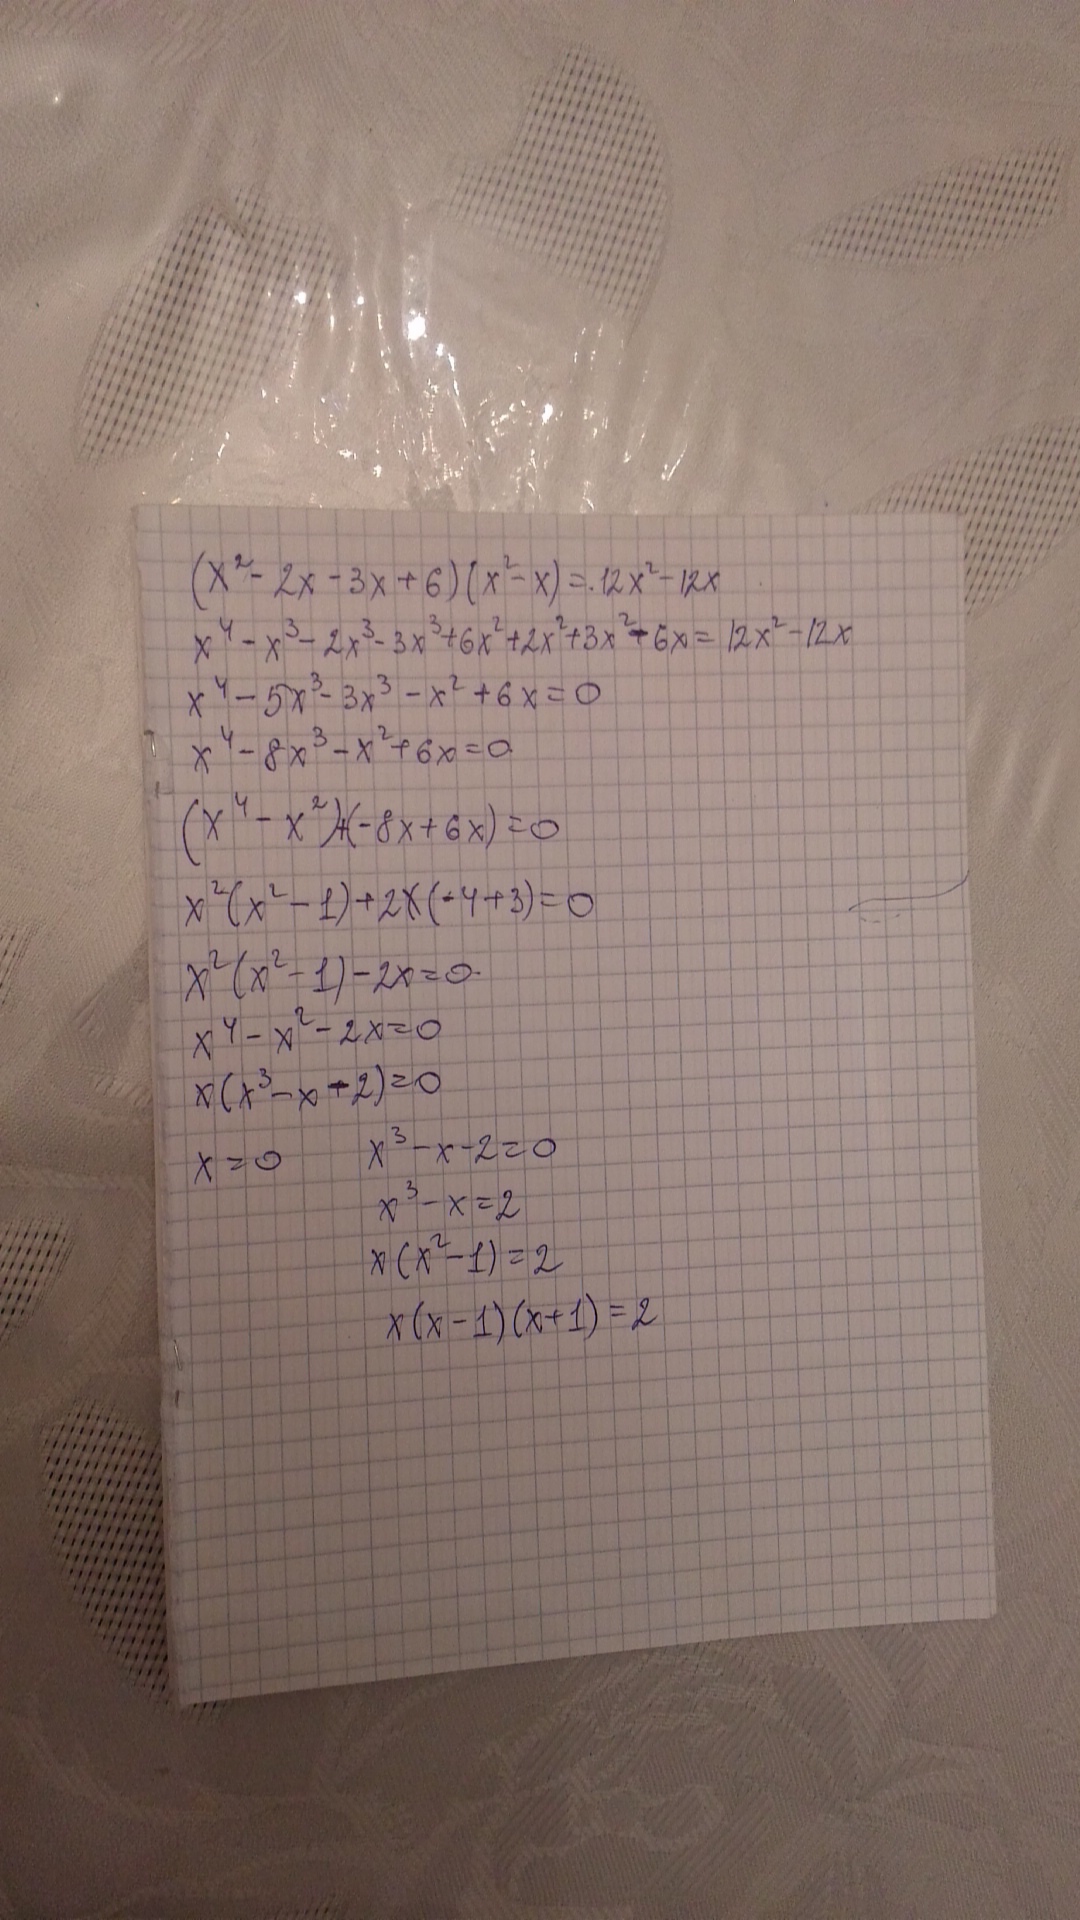 (x² - 2x - 3x + 6)(x² - x) = 12x² - 12x
x⁴ - x³ - 2x³ - 3x³ + 6x² + 2x² + 3x² - 6x = 12x² - 12x
x⁴ - 5x³ - 3x³ - x² + 6x = 0
x⁴ - 8x³ - x² + 6x = 0
(x⁴ - x²) + (-8x + 6x) = 0
x²(x² - 1) + 2x(-4 + 3) = 0
x²(x² - 1) - 2x = 0
x⁴ - x² - 2x = 0
x(x³ - x - 2) = 0
x = 0 x³ - x - 2 = 0
x³ - x = 2
x(x² - 1) = 2
x(x - 1)(x + 1) = 2